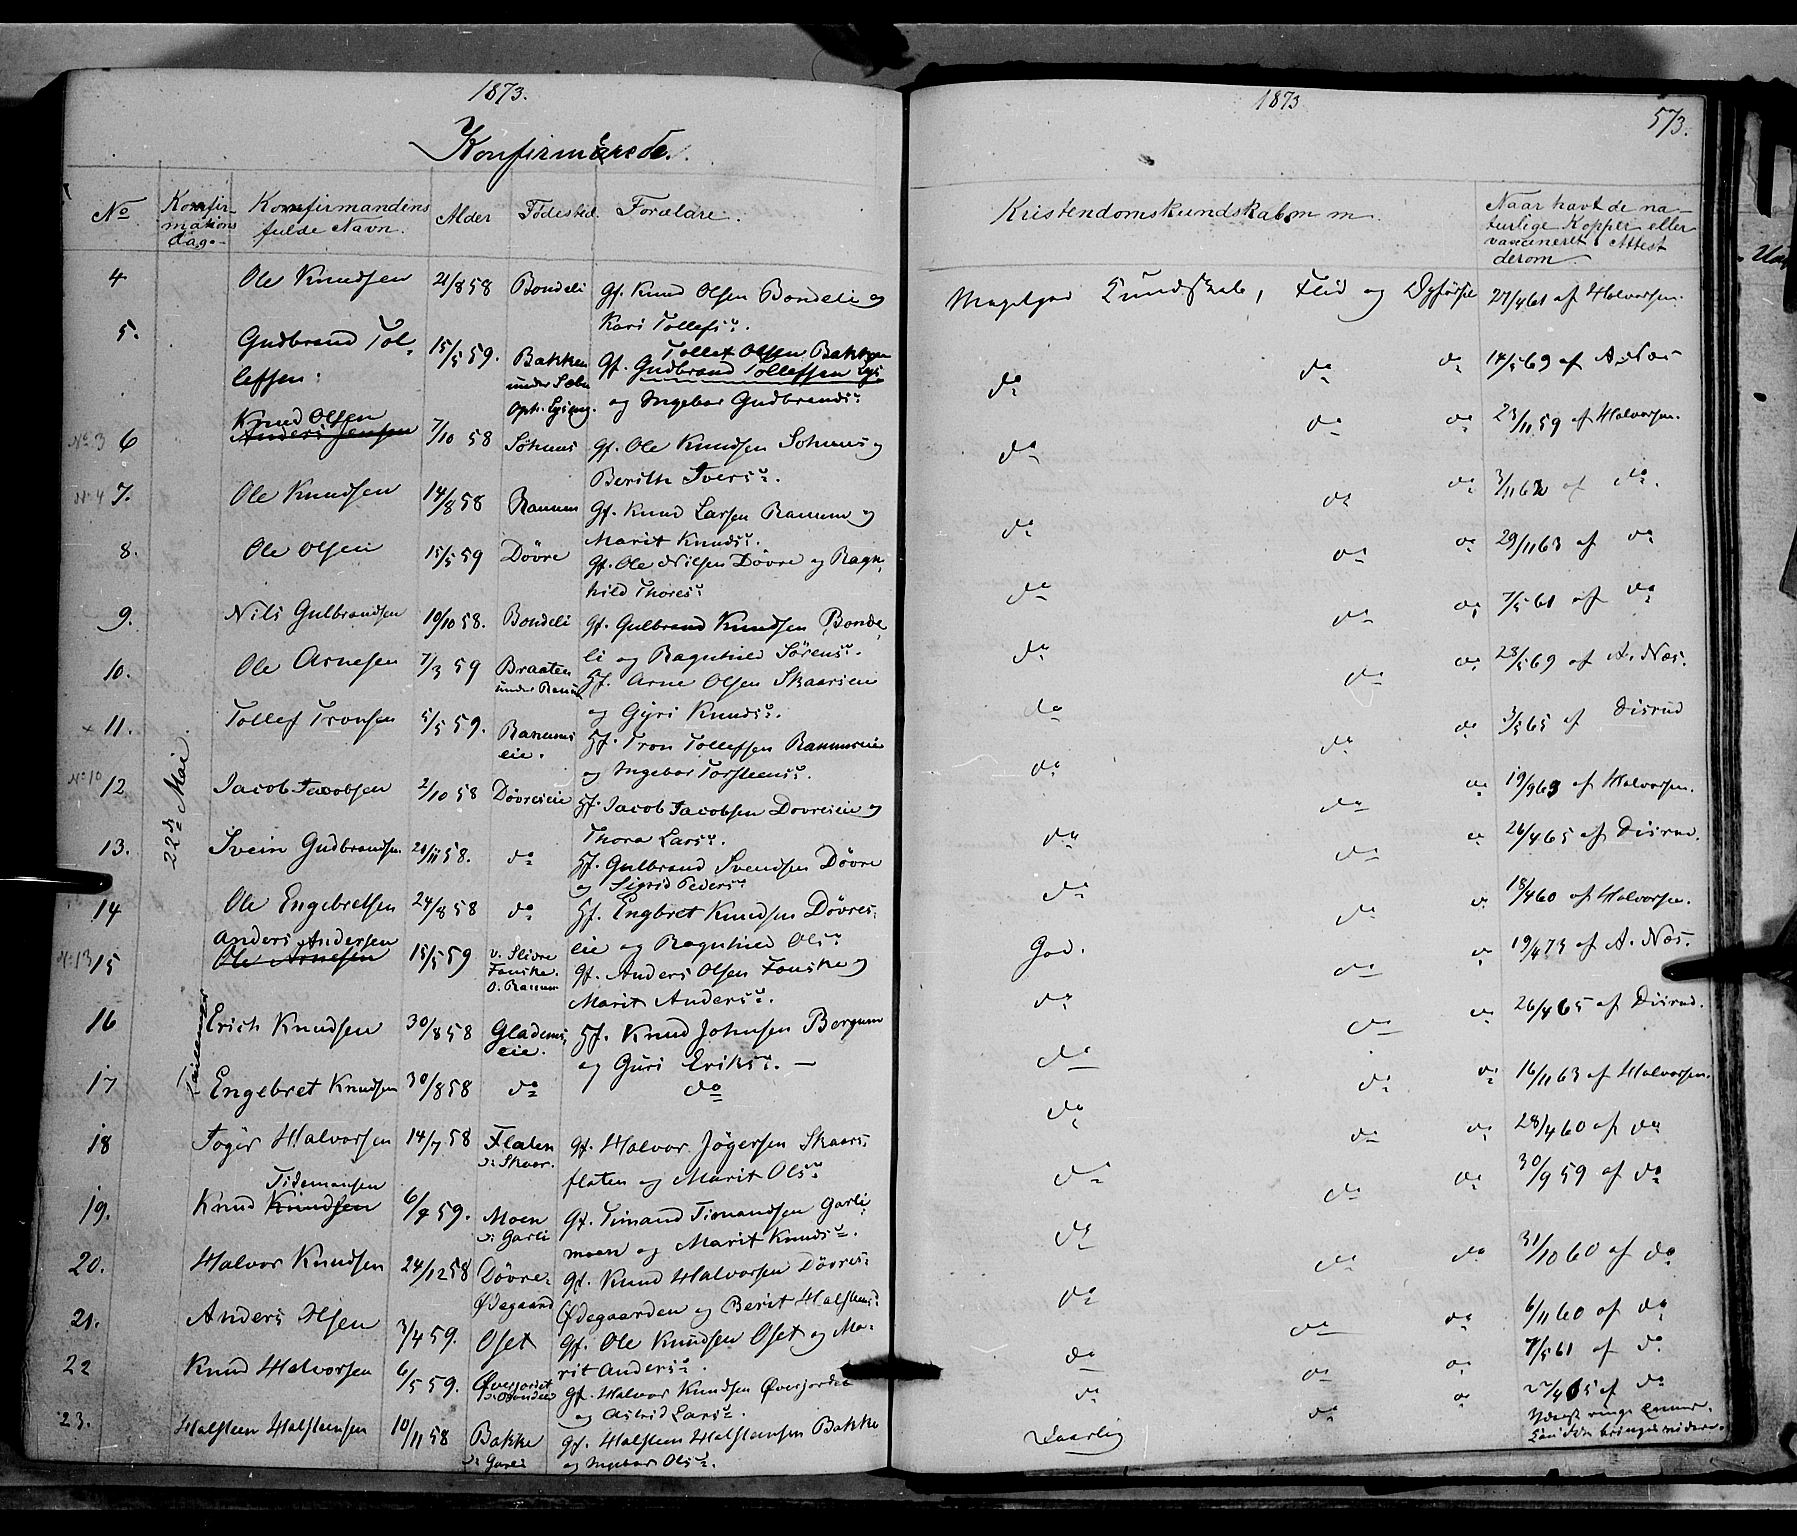 1873.
Konfirmerede.
No
Konfir-
mations
dag.
Konfirmandens
fulde Navn.
Alder
Födested
Forældre.
4
Ole Knudsen
21/8 58
Bondeli
Gf. Knud Olsen Bondeli og
Kari Tollefs:
5.
Gudbrand Tol-
lefsen:
15/5 59.
Bakken
under Sæbu
Opt. Lysing.
Tollef Olsen Bakken
Gf. Gudbrand Tollefsen
og Ingebor Gudbrands:
No 3 6
Knud Olsen
Anders Jensen
7/10 58
Söhuus
Gf. Ole Knudsen Söhuus og
Berith Ivers:
No 4 7.
Ole Knudsen
14/8 58
Ranum
Gf. Knud Larsen Ranum og
Marit Knuds:
8.
Ole Olsen
15/5 59
Dövre
Gf. Ole Nilsen Dövre og Ragn-
hild Thores:
9.
Nils Gulbrandsen
19/10 58.
Bondeli
Gf. Gulbrand Knudsen Bonde-
li og Ragnhild Sörens:
10.
Ole Arnesen
7/3 59
Braaten
under Ranum
Hf. Arne Olsen Skaarsien
og Gyri Knuds:
x 11.
Tollef Tronsen
5/5 59.
Ranums
eie.
Hf. Tron Tollefsen Ranumseie
og Ingebor Torsteens:
No 10 12
Jacob Jacobsen
2/10 58
Dövreseie
Hf. Jacob Jacobsen Dovreseie og
Thora Lars:
13.
Svein Gudbrandsen
21/11 58.
do
Hf. Gulbrand Svendsen Dövre
og Sigrid Peders:
22de Mai.
14
Ole Engebretsen
24/8 58
do
Hf. Engbret Knudsen Dövres-
eie og Ragnhild Ols:
No 13 15
Anders Andersen
Ole Arnesen
15/5 59
v. Slidre
Fauske.
O. Ranum
Gf. Anders Olsen Fauske og
Marit Anders:
16
Erich Knudsen
30/8 58
Gladems-
eie.
Hf. Knud Johnsen Bergum
og Guri Eriks:
Tvillinger
17
Engebret Knudsen
30/8 58
do
do
18
Jögir Halvorsen
14/7 58
Flaten
u. Skaar.
Gf. Halvor Jögersen Skaars-
flaten og Marit Ols:
19.
Tidemansen
Knud Knudsen
6/4 59.
Moen
u. Garli
Gf. Timand Timandsen Garli-
moen og Marit Knuds:
20.
Halvor Knudsen
24/12 58
Dövre-
Ödegaard
Gf. Knud Halvorsen Dövres-
Ödegaarden og Berit Halsteens:
21.
Anders Olsen
3/4 59.
Oset
Gf. Ole Knudsen Oset og Ma-
rit Anders:
22
Knud Halvorsen
6/5 59.
Överjordet
u. Bondeli
Gf. Halvor Knudsen Överjordet
og Astrid Lars:
23.
Halsteen Halsteensen
10/11 58
Bakke
u. Garli
Gf. Halsteen Halsteensen Bakke
og Ingebor Ols:
1873
573.
Kristendomskundskab m m.
Naar havt de na-
turlige Kopper eller
vaccineret. Attest
derom
Megetgod Kundskab, Flid og Opförsel
27/4 61 af Halvorsen.
do do do 14/5 69 af A. Næs
do do do 23/11 59 af Halvorsen.
do do do 3/11 62 af do.
do do do 29/11 63 af do
do do do 7/5 61 af do
do do do 28/5 69 af A. Næs.
do do do 3/5 65 af Disrud
do do do 19/9 63 af Halvorsen.
do do do 26/4 65 af Disrud.
do do do 18/4 60 af Halvorsen.
God. do do 19/4 73 af A. Næs.
do do do 26/4 65 af Disrud.
do do do 16/11 63 af Halvorsen.
do do do 28/4 60 af do
do do do 30/9 59 af do
do do do 31/10 60 af do
do do do 6/11 60 af do
do do do 7/5 61 af do
do do do /4 65 af do
Daarlig do